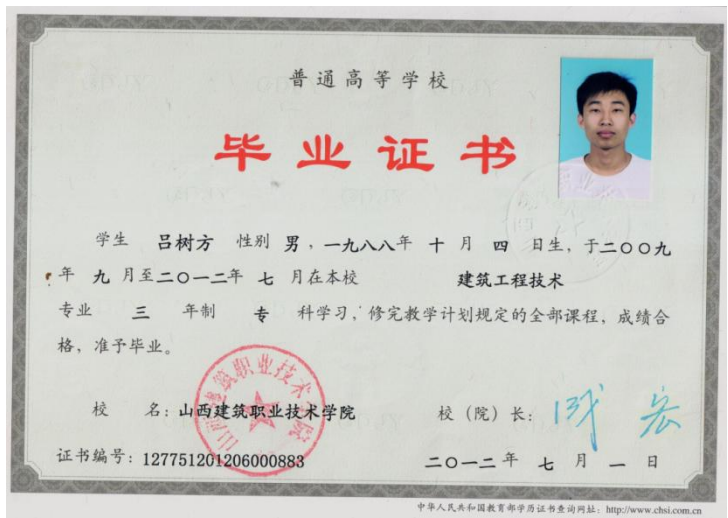 普通高等学校
毕业证书
学生 吕树方 性别 男，一九八八年 十 月 四 日生，于二〇〇九
年 九 月至二〇一二年 七 月在本校 建筑工程技术
专业 三 年制 专 科学习，修完教学计划规定的全部课程，成绩合
格，准予毕业。
山西建筑职业技术学院
校 名：山西建筑职业技术学院 校（院）长：
证书编号：127751201206000883 二〇一二年 七 月 一 日
中华人民共和国教育部学历证书查询网址：http://www.chsi.com.cn